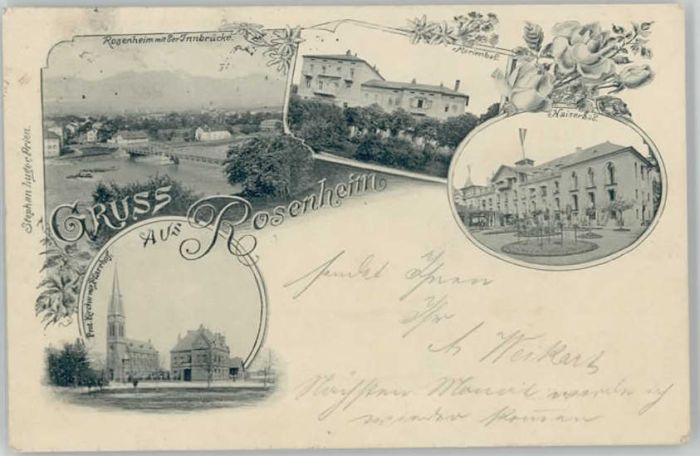 Rosenheim mit der Innbrücke.
Marienbad.
Kaiserbad.
Stephan Luger Prien.
GRUSS
AUS Rosenheim
Prot. Kirche mit Pfarrhof.
sendet Ihnen
Ihr
A Weikart
Nächsten Monat werde ich
wieder kommen